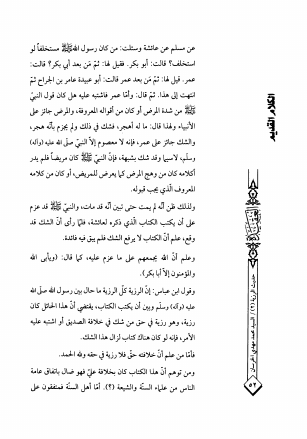 عن مسلم عن عائشة وسئلت: من كان رسول الله ﷺ مستخلفاً لو
استخلف؟ قالت: أبو بكر. فقيل لها: ثمّ مَن بعد أبي بكر؟ قالت:
عمر. قيل لها: ثمّ مَن بعد عمر قالت: أبو عبيدة عامر بن الجراح ثمّ
انتهت إلى هذا. ثمّ قال: وأمّا عمر فاشتبه عليه هل كان قول النبيّ
ﷺ من شدة المرض أو كان من أقواله المعروفة، والمرض جائز على
الأنبياء ولهذا قال: ما له أهجر، فشك في ذلك ولم يجزم بأنّه هجر،
والشك جائز على عمر، فإنه لا معصوم إلاّ النبيّ صلّى الله عليه (وآله)
وسلّم، لاسيما وقد شك بشبهة، فإنّ النبيّ ﷺ كان مريضاً فلم يدر
أكلامه كان من وهج المرض كما يعرض للمريض، أو كان من كلامه
المعروف الّذي يجب قبوله.
ولذلك ظن أنّه لم يمت حتى تبيّن أنّه قد مات، والنبيّ ﷺ قد عزم
على أن يكتب الكتاب الّذي ذكره لعائشة، فلمّا رأى أنّ الشك قد
وقع، علم أنّ الكتاب لا يرفع الشك فلم يبق فيه فائدة.
وعلم أنّ الله يجمعهم على ما عزم عليه، كما قال: (ويأبى الله
والمؤمنون إلاّ أبا بكر).
وقول ابن عباس: إنّ الرزية كلّ الرزية ما حال بين رسول الله صلّى الله
عليه (وآله) وسلّم وبين أن يكتب الكتاب، يقتضي أنّ هذا الحائل كان
رزية، وهو رزية في حق من شك في خلافة الصديق أو اشتبه عليه
الأمر، فإنه لو كان هناك كتاب لزال هذا الشك.
فأمّا من علم أنّ خلافته حقّ فلا رزية في حقه ولله الحمد.
ومن توهم أنّ هذا الكتاب كان بخلافة عليّ فهو ضال باتفاق عامة
الناس من علماء السنّة والشيعة (؟). أمّا أهل السنّة فمتفقون على
الكلام القديم
حديث الرزية (٢) / السيد محمد مهدي الخرسان
٥٢